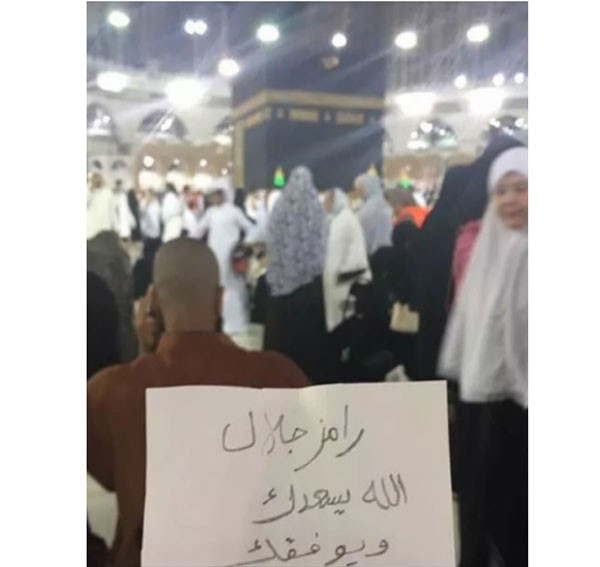 رامز جلال
الله يسعدك
ويوفقك